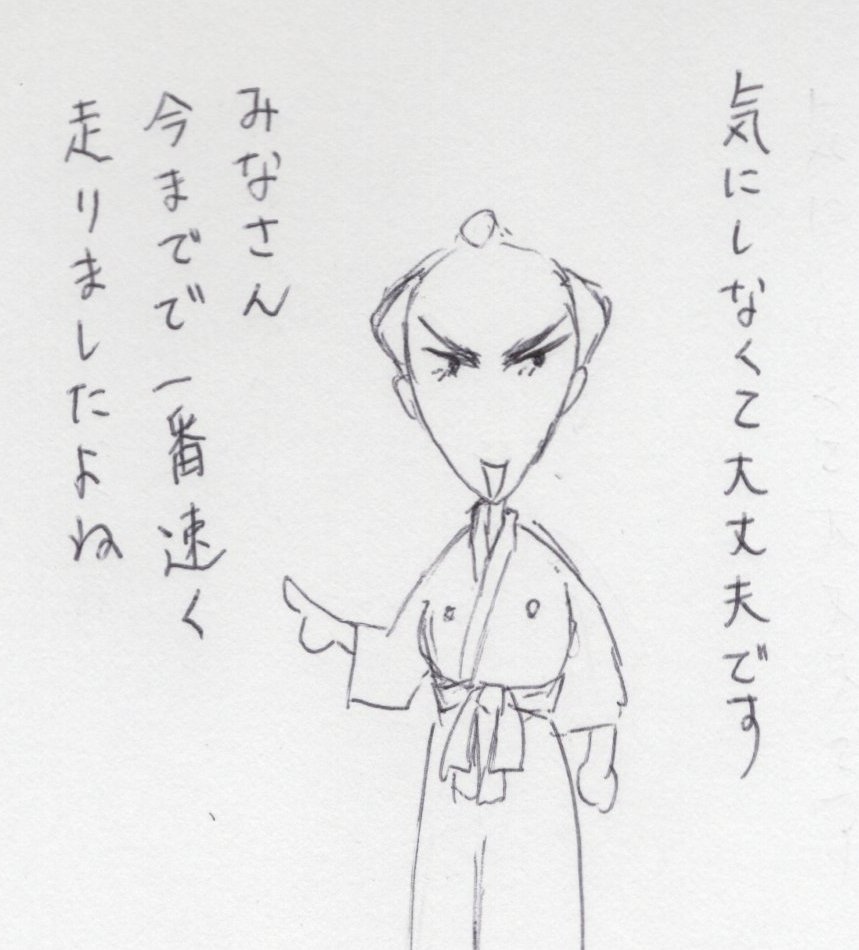 気にしなくて大丈夫です
みなさん
今までで一番速く
走りましたよね